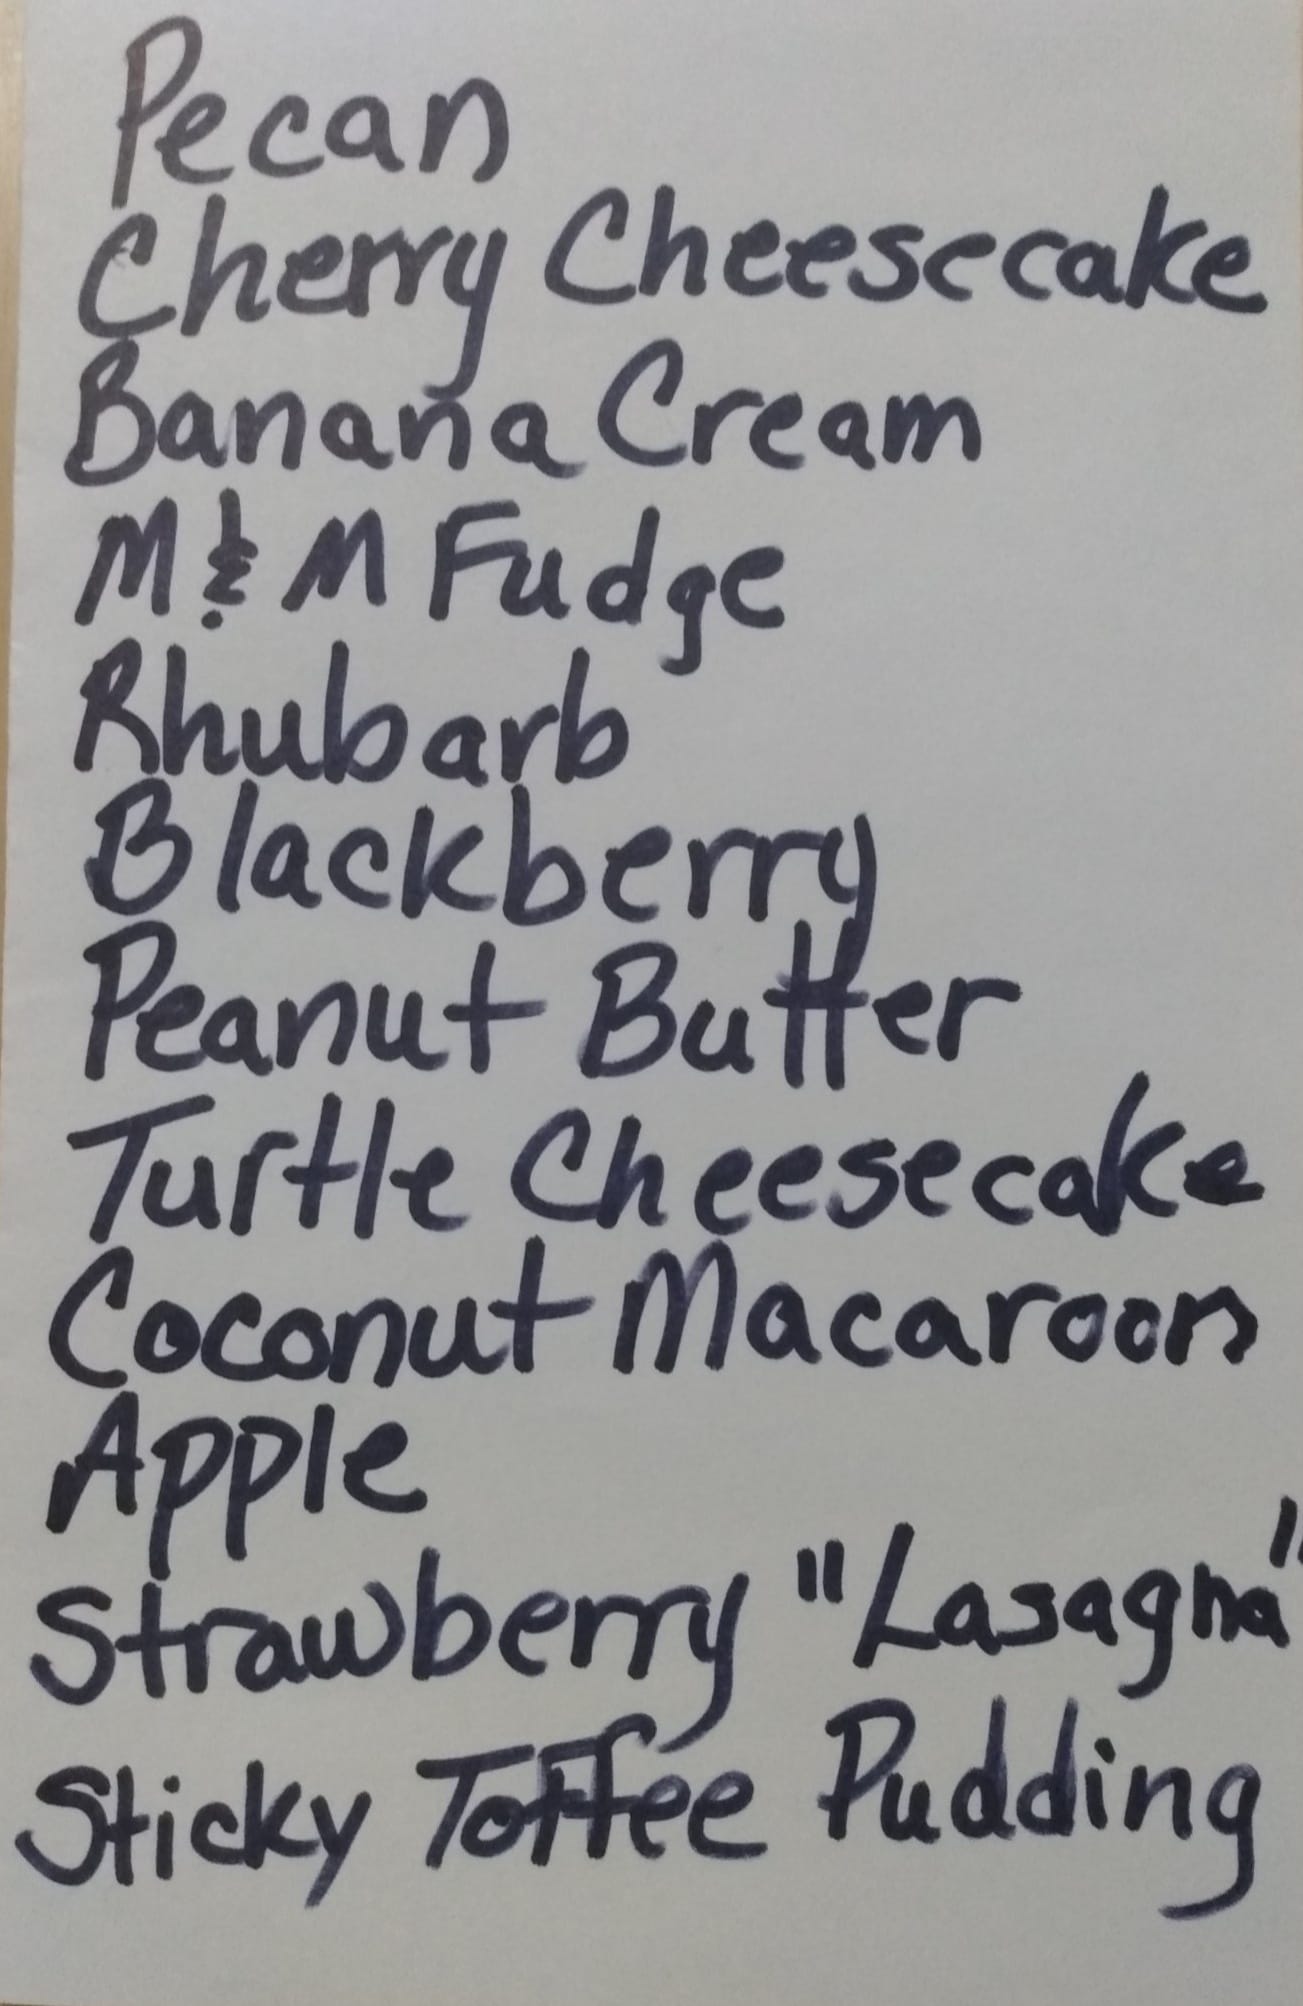 Pecan
Cherry Cheesecake
Banana Cream
M & M Fudge
Rhubarb
Blackberry
Peanut Butter
Turtle Cheesecake
Coconut Macaroon
Apple
Strawberry "Lasagna"
Sticky Toffee Pudding